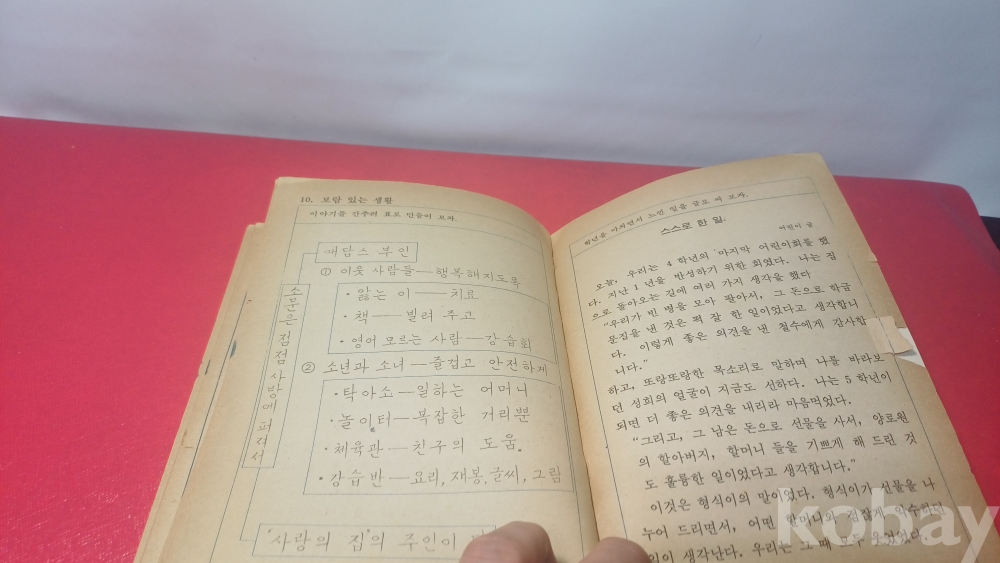 10. 보람 있는 생활
이야기를 간추려 표로 만들어 보자.
애담스 부인
① 이웃 사람들—행복해지도록
·앓는 이——치료
·책——빌려 주고
·영어 모르는 사람—강습회
② 소년과 소녀—즐겁고 안전하게
·탁아소—일하는 어머니
·놀이터—복잡한 거리뿐
·체육관—친구의 도움.
·강습반—요리, 재봉, 글씨, 그림
소문은 점점 사방에 퍼져서
'사랑의 집'의 주인이
학년을 마치면서 느낀 일을 글로 써 보자.
스스로 한 일.
어린이 글
오늘, 우리는 4 학년의 마지막 어린이회를 했
다. 지난 1 년을 반성하기 위한 회였다. 나는 집
으로 돌아오는 길에 여러 가지 생각을 했다
"우리가 빈 병을 모아 팔아서, 그 돈으로 학급
문집을 낸 것은 퍽 잘 한 일이었다고 생각합니
다. 이렇게 좋은 의견을 낸 철수에게 감사합
니다."
하고, 또랑또랑한 목소리로 말하며 나를 바라보
던 성희의 얼굴이 지금도 선하다. 나는 5 학년이
되면 더 좋은 의견을 내리라 마음먹었다.
"그리고, 그 남은 돈으로 선물을 사서, 양로원
의 할아버지, 할머니 들을 기쁘게 해 드린 것
도 훌륭한 일이었다고 생각합니다."
이것은 형식이의 말이었다. 형식이가 선물을 나
누어 드리면서, 어떤 할머니와
이 생각난다. 우리는 그 때 모두
kobay